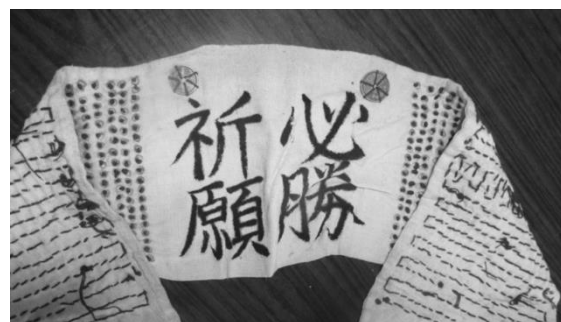 必勝
祈願